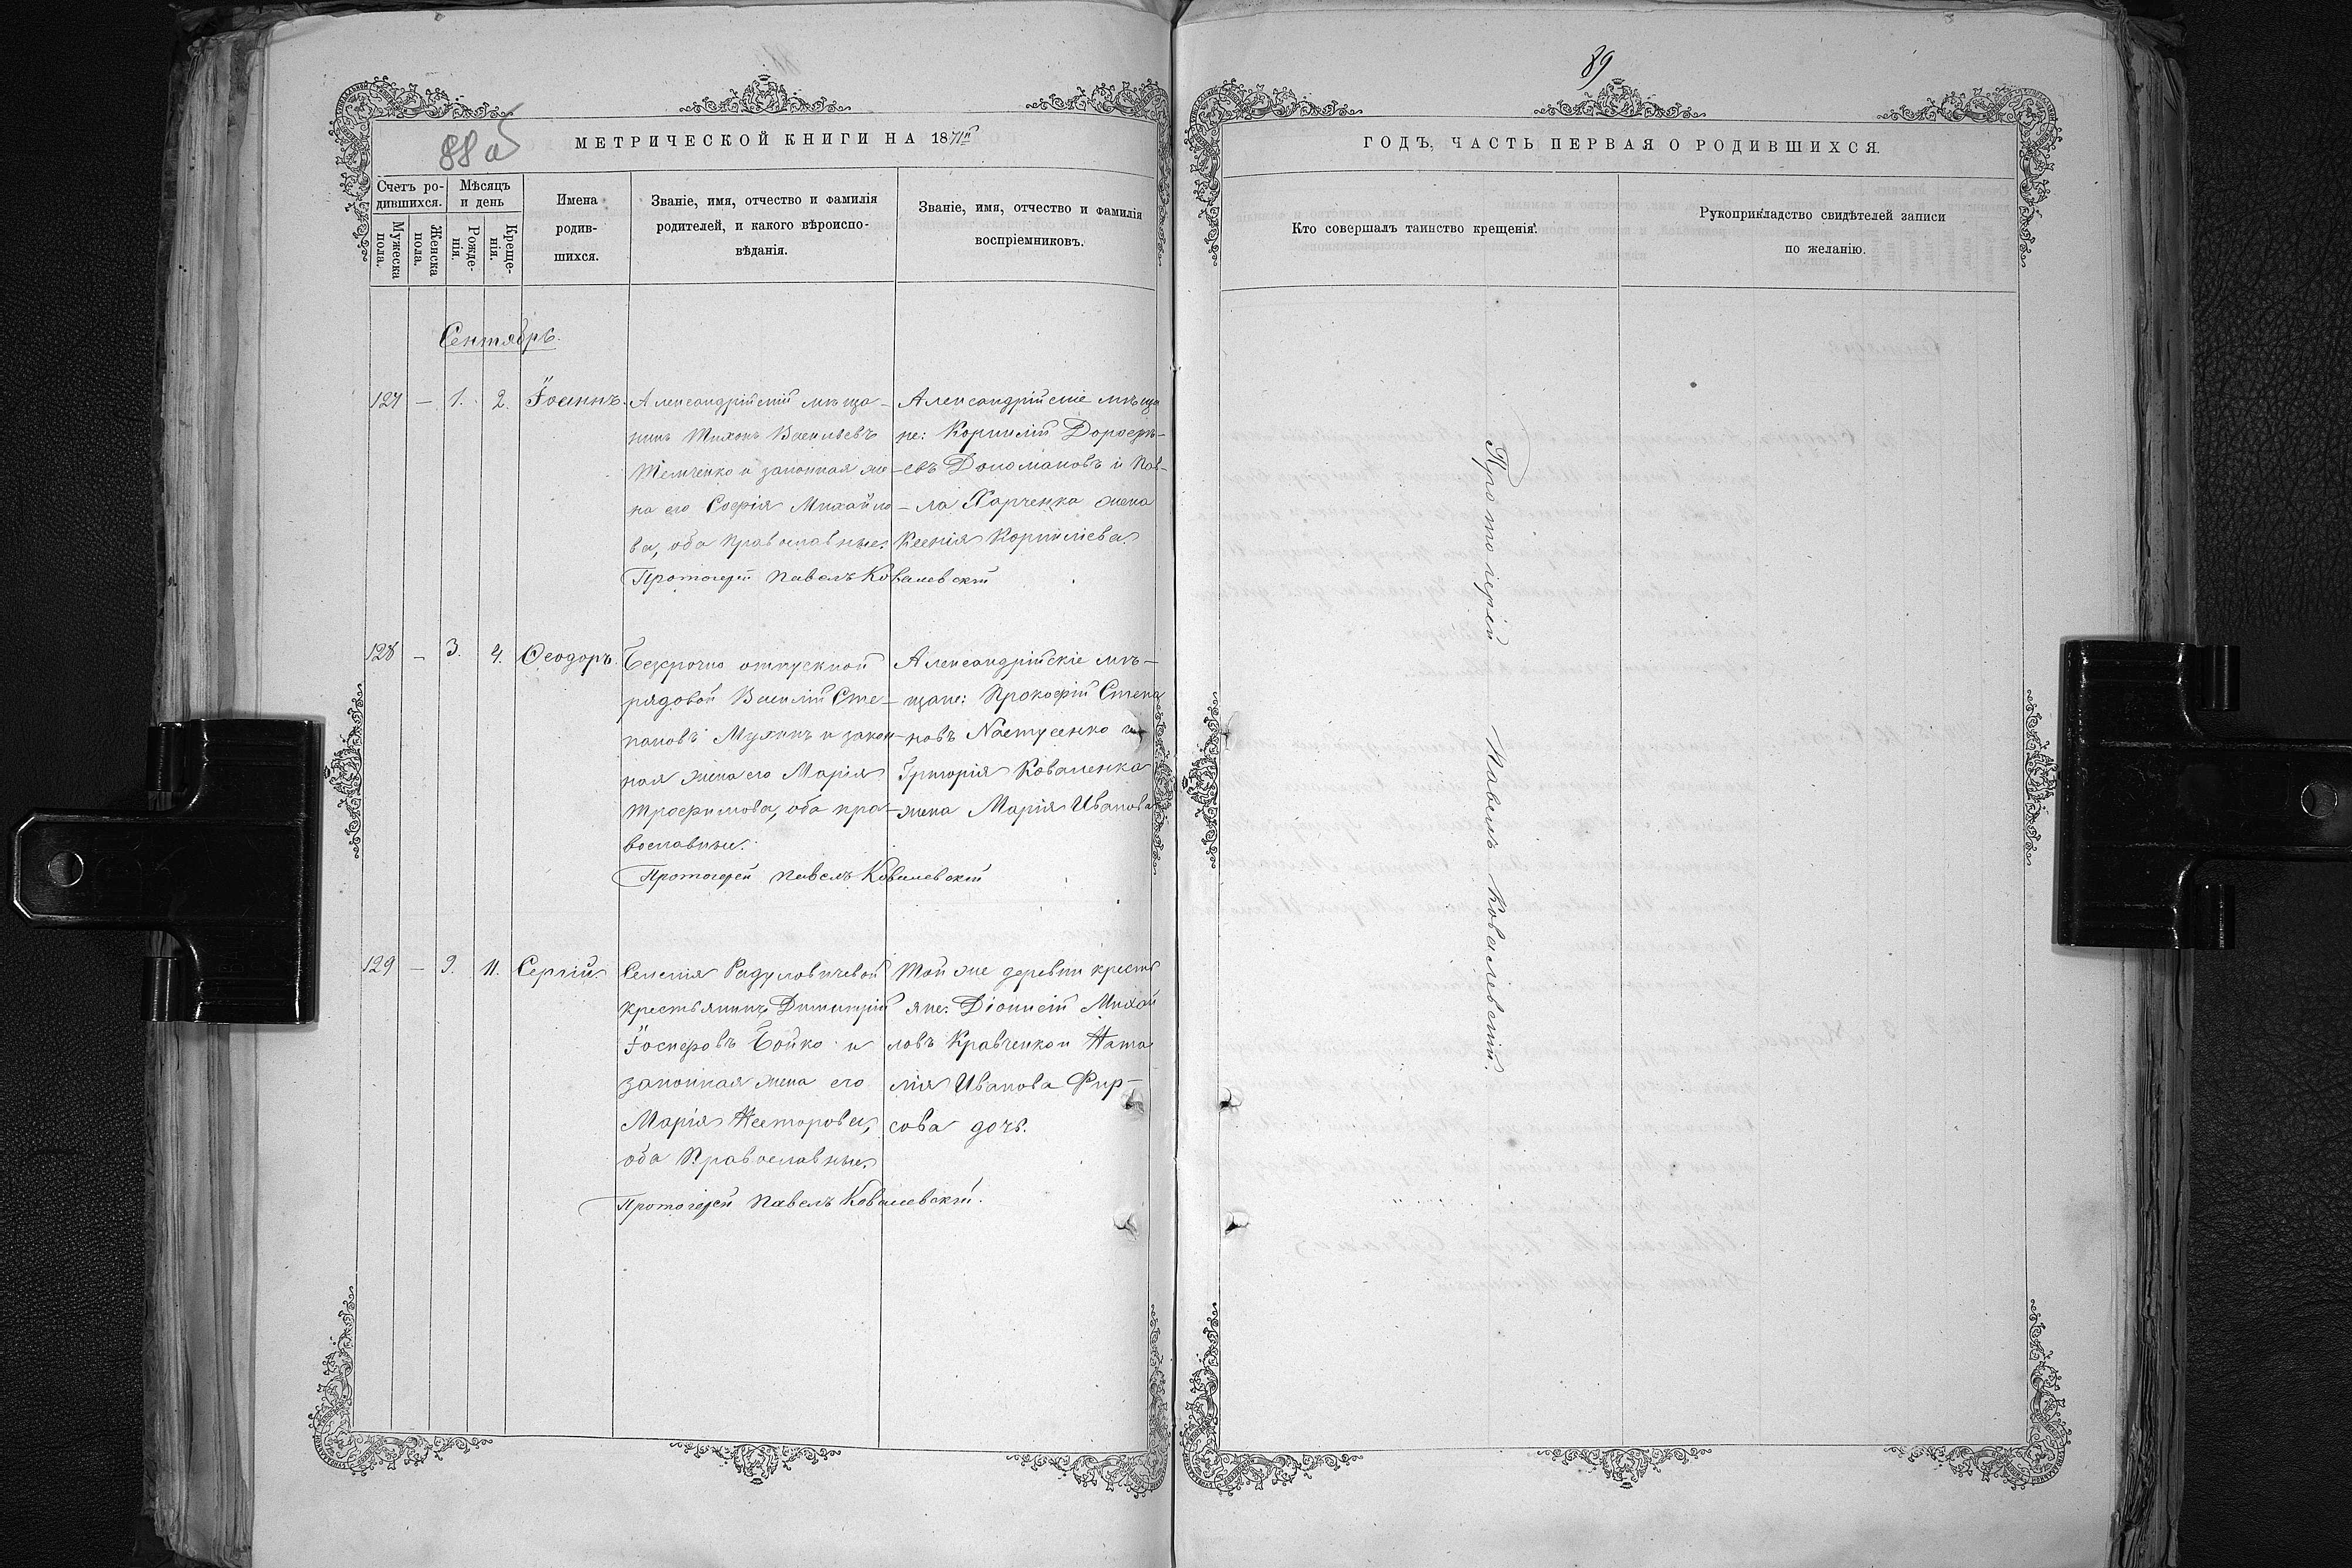 88 об
89
МЕТРИЧЕСКОЙ КНИГИ НА 1871й
ГОДЪ, ЧАСТЬ ПЕРВАЯ О РОДИВШИХСЯ.
Счетъ ро-
дившихся.
Мужеска
пола.
Женска
пола.
Мѣсяцъ
и день
Рожде-
нія.
Креще-
нія.
Имена
родив-
шихся.
Званіе, имя, отчество и фамилія
родителей, и какого вѣроиспо-
вѣданія.
Званіе, имя, отчество и фамилія
воспріемниковъ.
Кто совершалъ таинство крещенія.
Рукоприкладство свидѣтелей записи
по желанію.
Сентябрь.
127 — 1. 2. Іоаннъ.
Александрійскій мѣща-
нинъ Тихонъ Васильевъ
Темченко и законная же-
на его Софія Михайло
ва, оба Православные.
Александрійскіе мѣща
не: Корнилій Дорофѣ-
евъ Доломановъ и Пав-
ла Харченка жена
Ксенія Корниліева.
Протоіерей Павелъ Ковалевскій
128 — 3. 4. Ѳеодоръ.
Безсрочно отпускной
рядовой Василій Сте-
пановъ Мухинъ и закон-
ная жена его Марія
Трофимова, оба пра-
вославные.
Александрійскіе мѣ-
щане: Прокофій Степа
новъ Настусенко и
Григорія Коваленка
жена Марія Иванова
Протоіерей Павелъ Ковалевскій
129 — 9. 11. Сергій
Селенія Радуловичевой
крестьянинъ Димитрій
Іосифовъ Бойко и
законная жена его
Марія Несторова,
оба Православные.
Той же деревни кресть
яне: Діонисій Михай
ловъ Кравченко и Ната
лія Иванова Фир-
сова дочь.
Протоіерей Павелъ Ковалевскій.
Протоіерей Павелъ Ковалевскій.